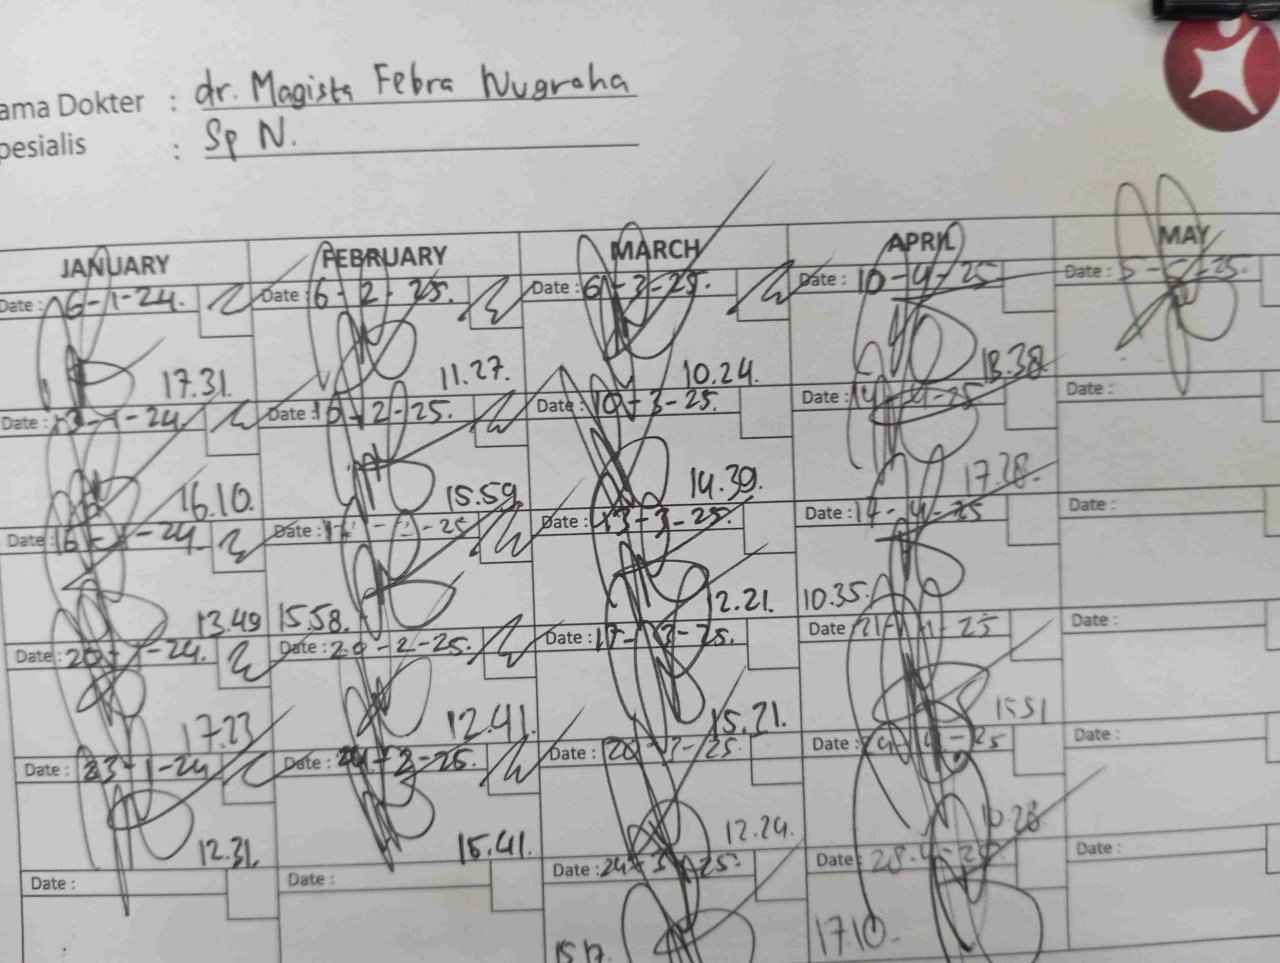 ama Dokter : dr. Magista Febra Nugraha
pesialis : Sp N.
JANUARY FEBRUARY MARCH APRIL MAY
Date : 6-1-24. Date : 6-2-25. Date : 6-3-25. Date : 10-4-25 Date : 5-5-25.
17.31. 11.27. 10.24. 13.38
Date : 13-1-24 Date : 10-2-25. Date : 10-3-25. Date : 14-4-25 Date :
16.10. 15.59. 14.39. 17.28.
Date : 16-1-24 Date : -25 Date : 13-3-25. Date : 17-4-25 Date :
13.49 15.58. 12.21. 10.35.
Date : 20-1-24. Date : 20-2-25. Date : 17-3-25. Date : 21-4-25 Date :
17.23 12.41. 15.21. 1551
Date : 23-1-24 Date : 24-2-25. Date : 20- -25. Date : -25 Date :
12.31. 15.41. 12.24. 10.28
Date : Date : Date : 24-3-25. Date : 28-4-25 Date :
15.17. 1710-